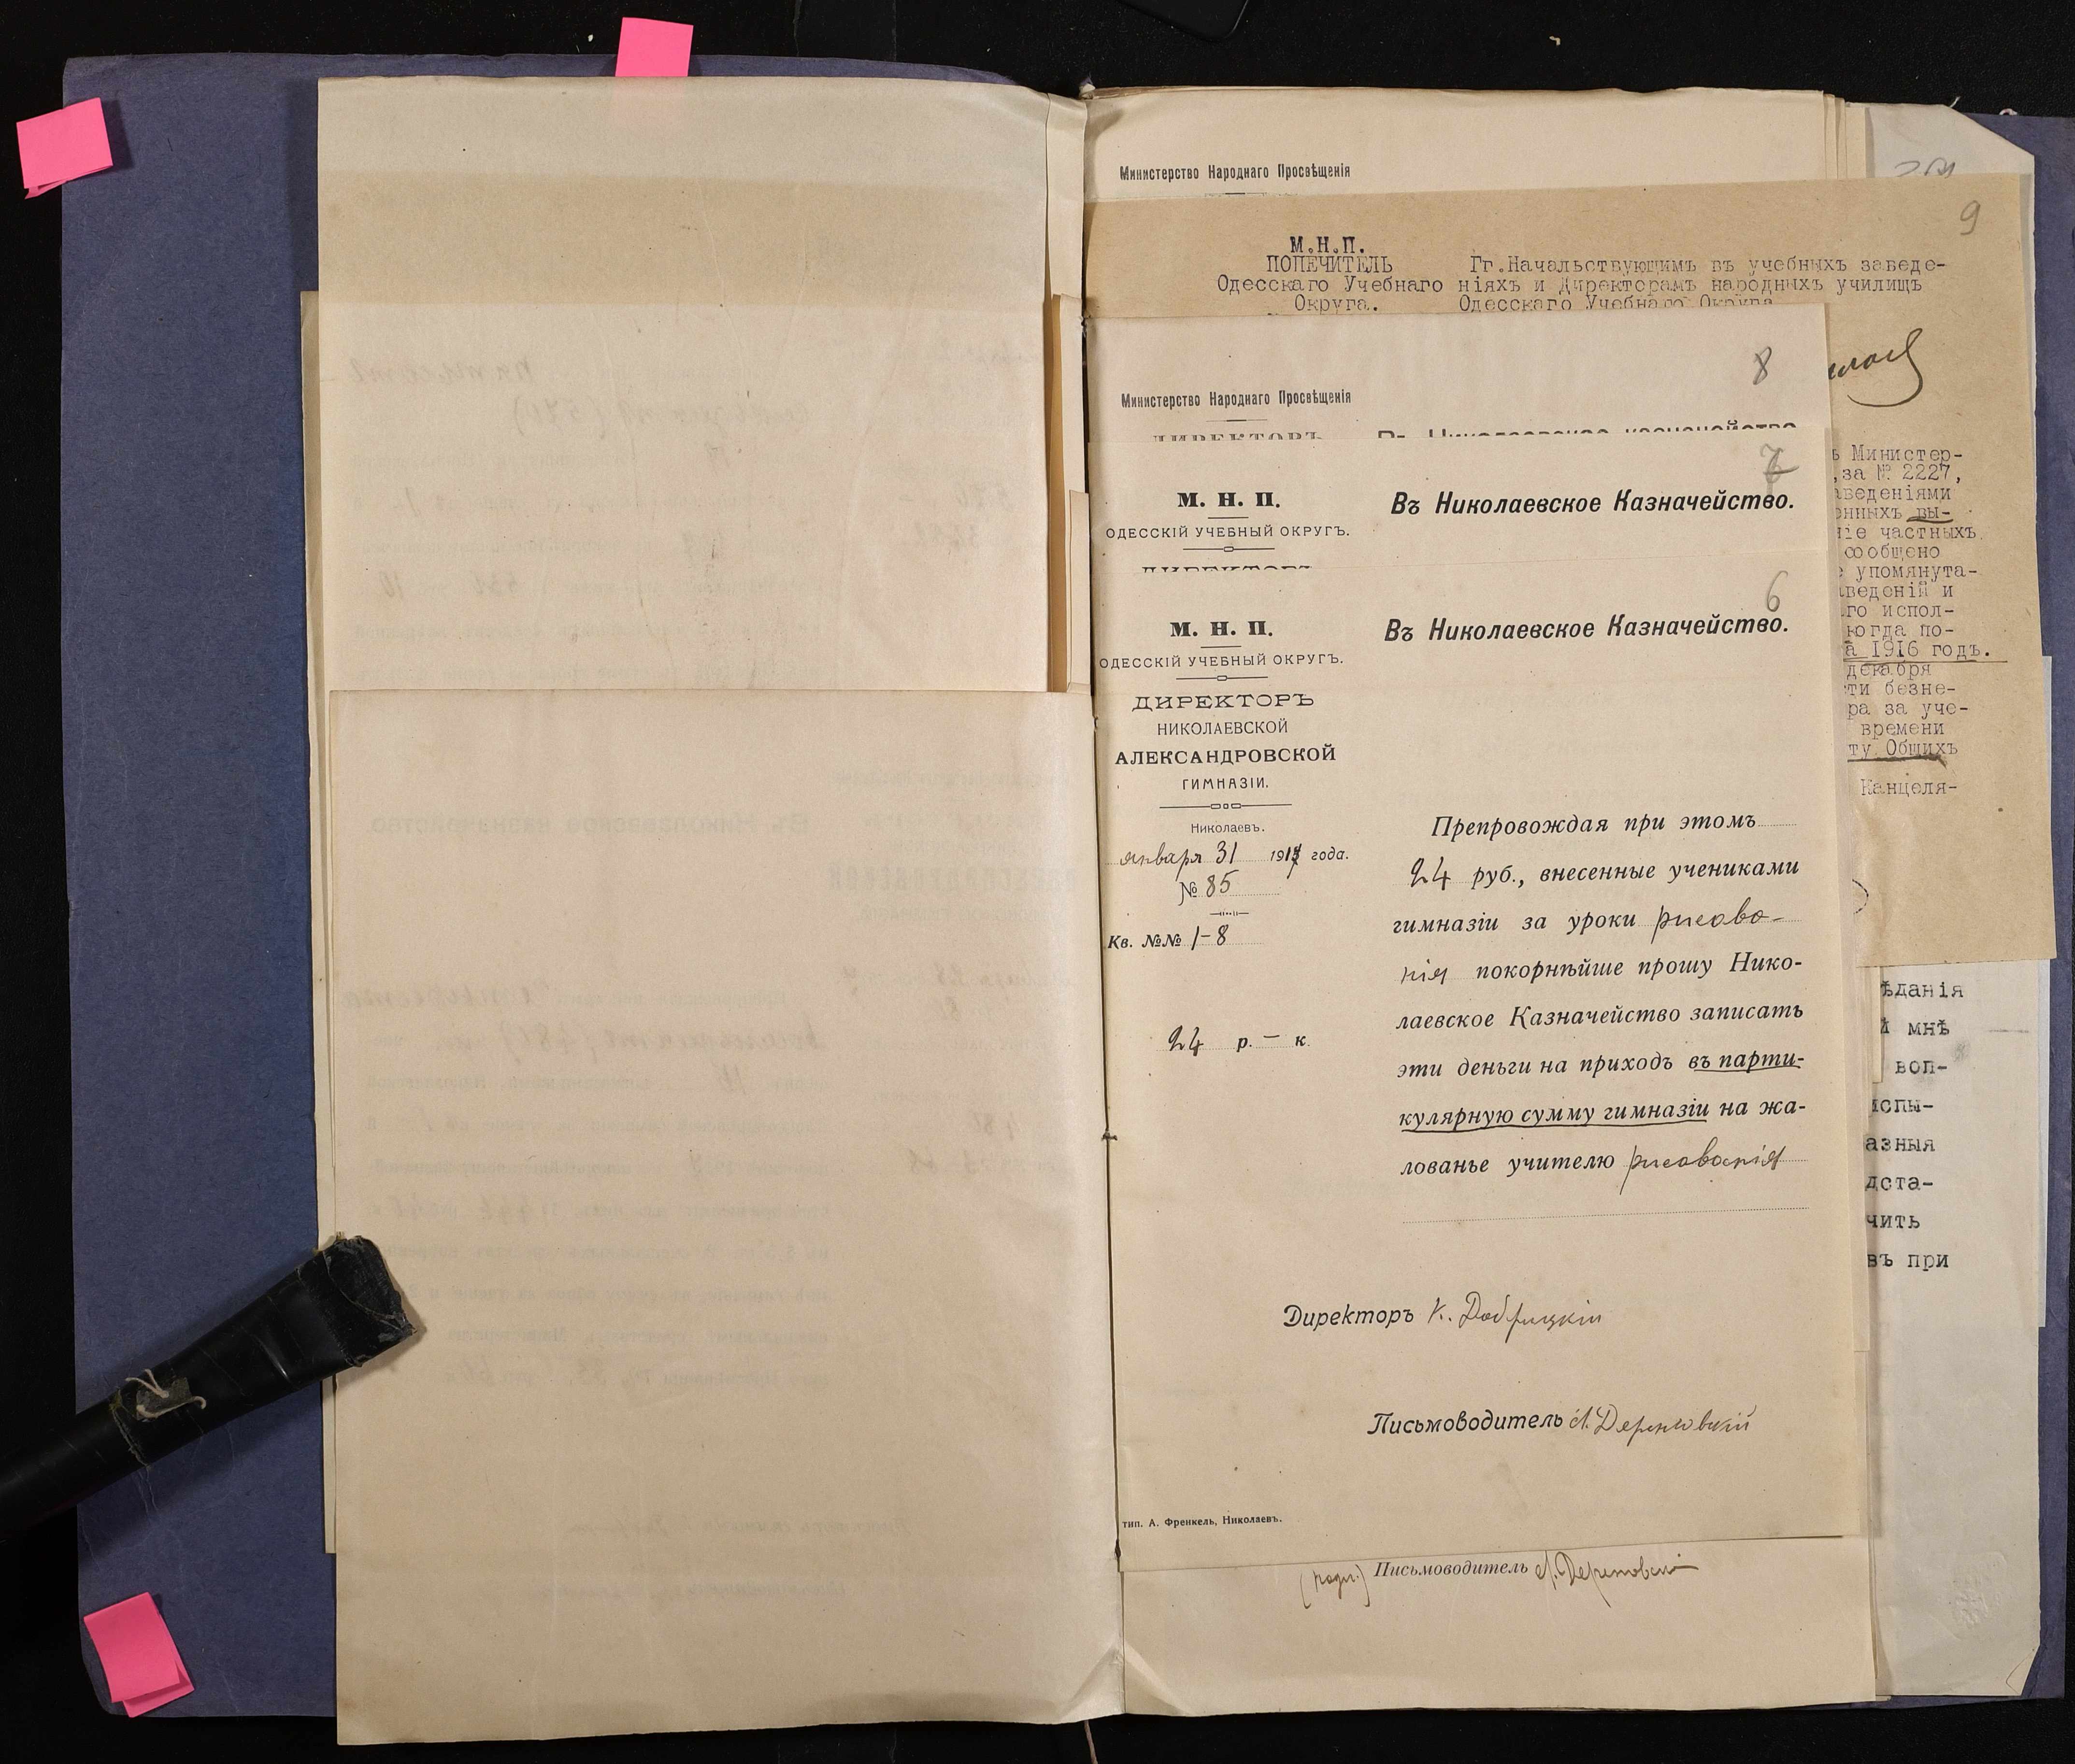 Министерство Народнаго Просвѣщенія
9
М.Н.П.
ПОПЕЧИТЕЛЬ
Одесскаго Учебнаго
Округа.
Гг.Начальствующимъ въ учебныхъ заведе-
ніяхъ и Директорамъ народныхъ училищъ
Одесскаго Учебнаго Округа
8
Министерство Народнаго Просвѣщенія
ДИРЕКТОРЪ
Въ Николаевское казначейство
7
М. Н. П.
Въ Николаевское Казначейство.
ОДЕССКІЙ УЧЕБНЫЙ ОКРУГЪ.
ДИРЕКТОРЪ
6
М. Н. П.
Въ Николаевское Казначейство.
ОДЕССКІЙ УЧЕБНЫЙ ОКРУГЪ.
ДИРЕКТОРЪ
НИКОЛАЕВСКОЙ
АЛЕКСАНДРОВСКОЙ
ГИМНАЗІИ.
Николаевъ.
января 31 1917 года.
№ 85
Кв. №№ 1-8
24 р. — к.
Препровождая при этомъ
24 руб., внесенные учениками
гимназіи за уроки рисова-
нія покорнѣйше прошу Нико-
лаевское Казначейство записать
эти деньги на приходъ въ парти-
кулярную сумму гимназіи на жа-
лованье учителю рисованія
Директоръ К. Добрицкій
Письмоводитель
тип. А. Френкель, Николаевъ.
(подп.) Письмоводитель
Министер-
,за № 2227,
аведеніями
онныхъ вы-
ніе частныхъ
сообщено
упомянута-
аведеній и
го испол-
когда по-
а 1916 годъ.
декабря
ти безне-
ра за уче-
времени
ту Общихъ
Канцеля-
ѣданія
й мнѣ
воп-
испы-
азныя
дста-
чить
въ при